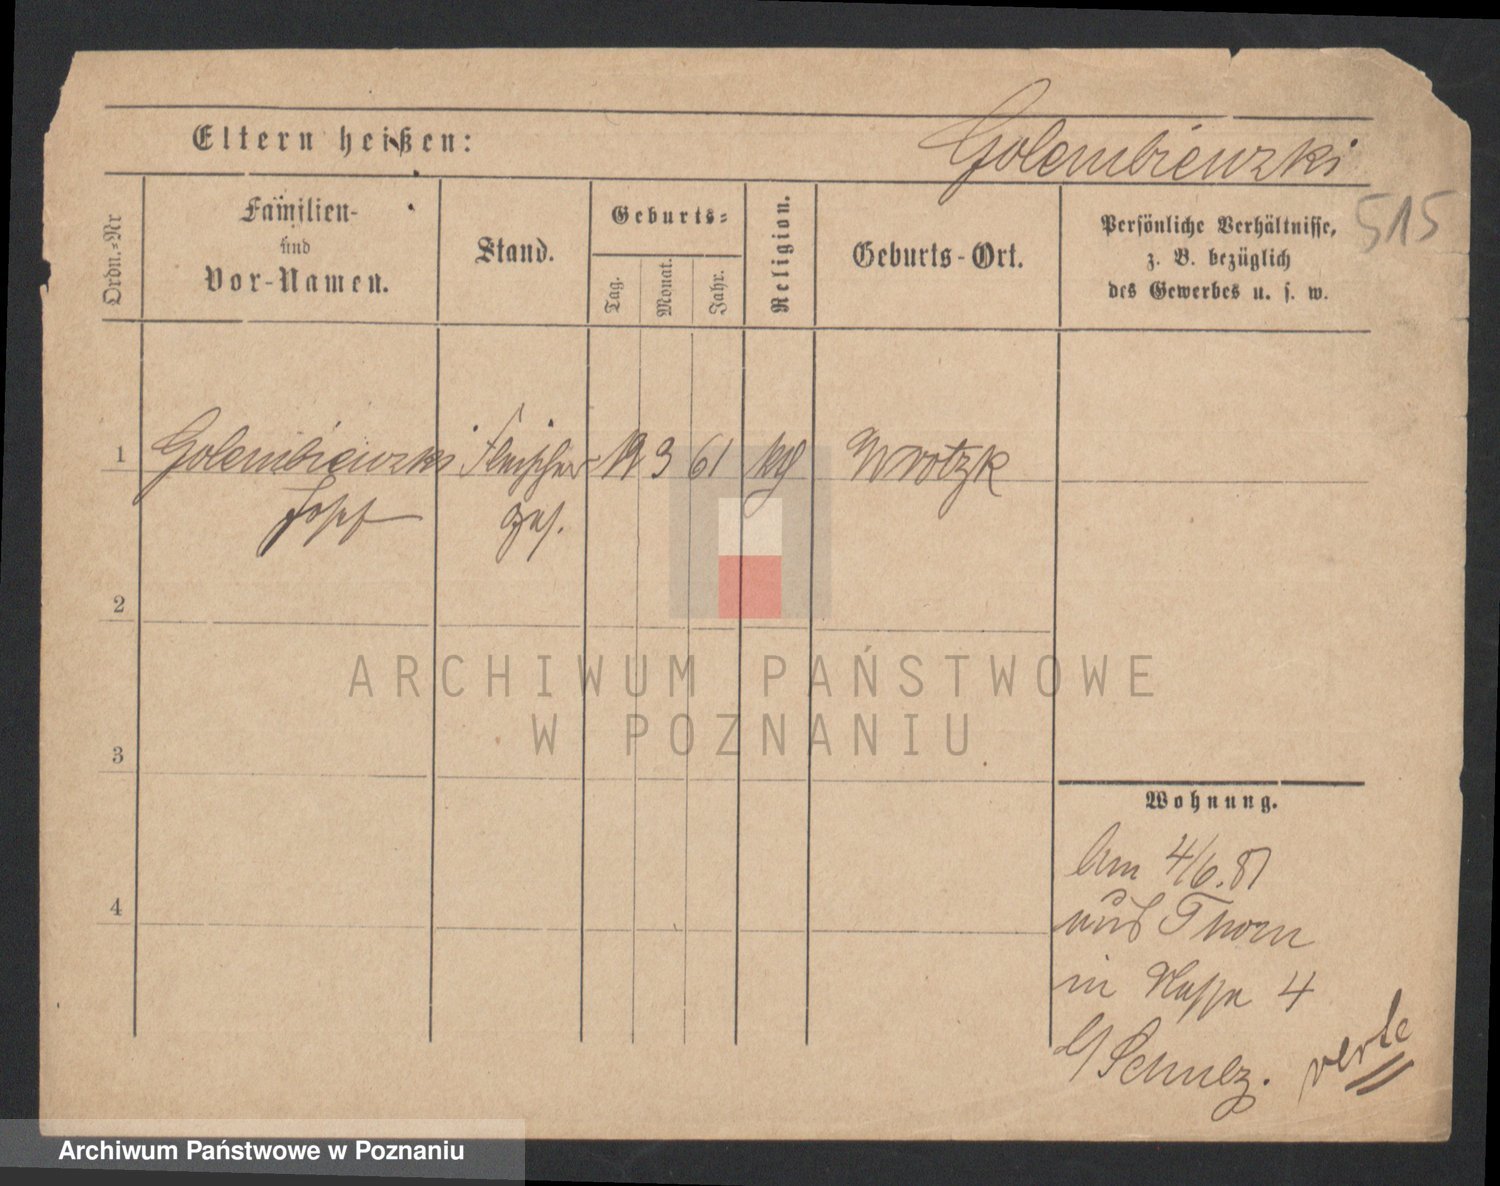 Golembiewzki
Eltern heißen:
515
Ordn.-Nr
Familien-
und
Vor-Namen.
Stand.
Geburts-
Tag.
Monat.
Jahr.
Religion.
Geburts-Ort.
Persönliche Verhältnisse,
z. B. bezüglich
des Gewerbes u. s. w.
1 Golembiewzki Fleischer 3 61 Wrotzk
Josef ges.
2
3
4
Wohnung.
Am 4/6. 81
aus Thorn
in 4
Schulz.
ARCHIWUM PAŃSTWOWE
W POZNANIU
Archiwum Państwowe w Poznaniu